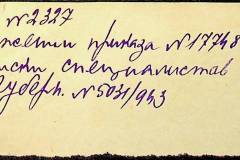 №2327
жении приказа №17748
иски специалистов
Губерн. №5031/943